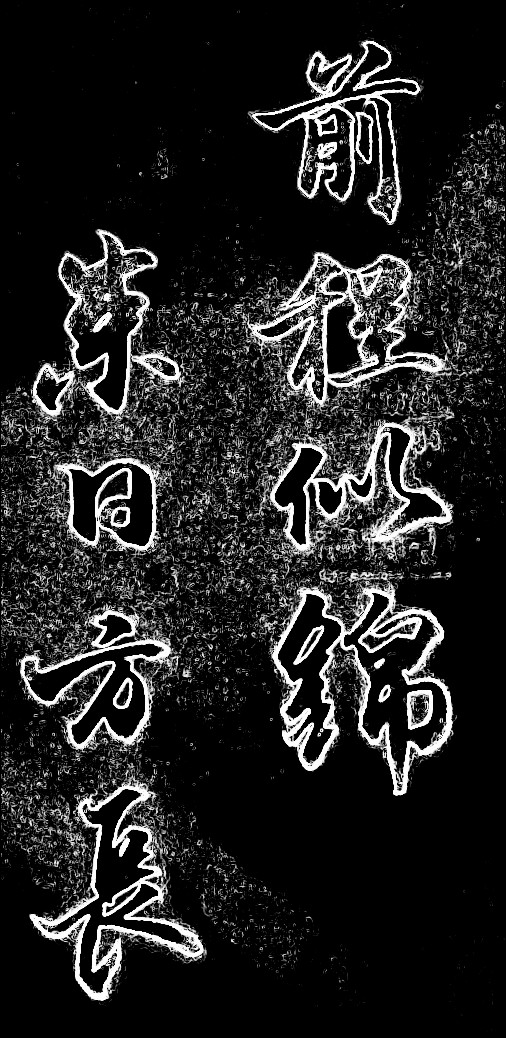 前程似錦
來日方長